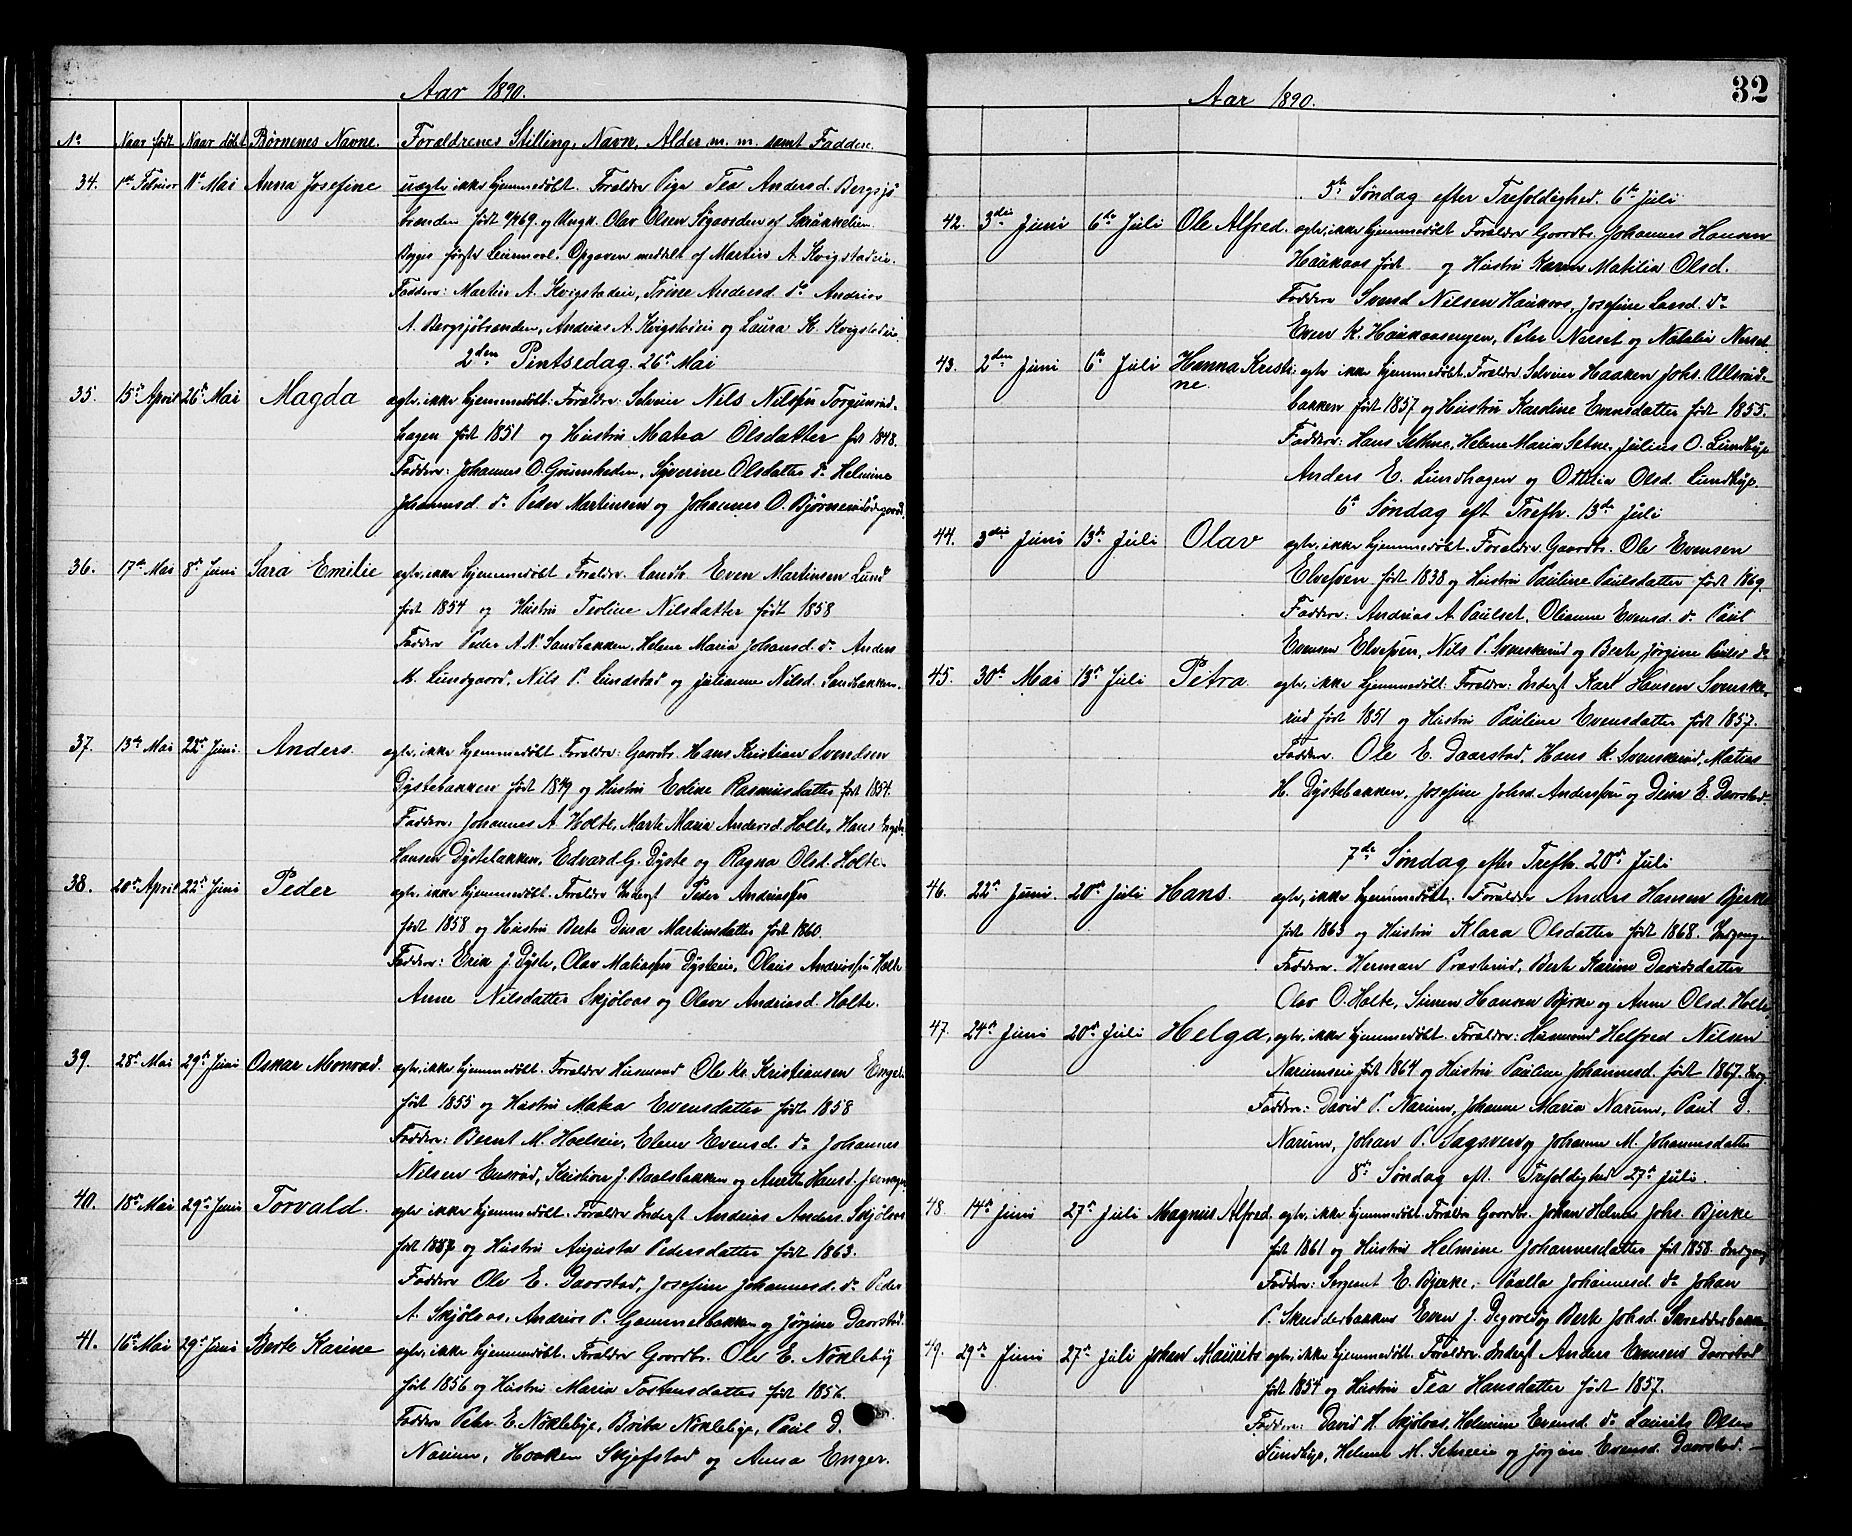 Aar 1890.
No Naar født Naar døbt Børnenes Navne. Forældrenes Stilling, Navn, Alder m. m. samt Faddere.
34. 1ste Februar 11te Mai Anna Josefine uægte ikke hjemmedøbt. Forældre Pige Tea Andersd. Bergsjø
branden født og Ungk. Olav Olsen
Begges første Leiermaal. Opgaven meddelt af Martin A. Kvigstadeie.
Faddere: Martin A. Kvigstadeie, Trine Andersd. do Andreas
A. Bergsjøbranden, Andreas A. Kvigstadeie og Laura K. Kvigstadeie
2den Pintsedag. 26de Mai
35. 15de April 26de Mai Magda ægte, ikke hjemmedøbt: Forældre: Selveier Nels Nilssen Torgunrud-
hagen født 1851 og Hustru Matea Olsdatter født 1848.
Faddere: Johannes O. Grimsheden, Syverine Olsdatter do Helmine
Johannesd. do Peder Martinsen og Johannes O. Bjørnerudsødegaard.
36. 17de Mai 8de Juni Sara Emilie ægte, ikke hjemmedøbt Forældre. Landh. Even Martinsen Lund
født 1854 og Hustru Teoline Nilsdatter født 1858
Faddere Peder A. N. Sandbakken, Helene Maria Johansd. do Anders
M. Lundgaard, Nils P. Lundstad og Julianne Nilsd. Sandbakken.
37. 13de Mai 22de Juni. Anders. ægte, ikke hjemmedøbt. Forældre: Gaardbr. Hans Kristian Svendsen
Dystebakken født 1849 og Hustru Edine Rasmusdatter født 1854.
Faddere: Johannes A Holte, Marte Maria Andersd. Holte, Hans
Hansen Dystebakken, Edvard G. Dyste og Ragna Olsd. Holte.
38. 20de April 22de Juni Peder ægte, ikke hjemmedøbt. Forældre Inderst Peder Andreassen
født 1858 og Hustru Berte Dina Martinsdatter født 1860.
Faddere: Erik J. Dyste, Olav Matiassen Dysteeie, Olaus Andreassen Holte
Anne Nilsdatter Skjølaas og Olava Andreasd. Holte.
39. 28de Mai 29de Juni Oskar Monrad. ægte, ikke hjemmedøbt. Forældre Husmand Ole Kr. Kristiansen
født 1855 og Hustru Matea Evensdatter født 1858
Faddere: Bernt M. Hoelseie, Elene Evensd. do Johannes
Nilsen Ensrud, Kristian J. Baalsbakken og Anette Hansd.
40. 18de Mai 29de Juni Torvald. ægte ikke hjemmedøbt. Forældre Inderst Andreas Anders. Skjølaas
født 1857 og Hustru Augusta Pedersdatter født 1863.
Faddere Ole E. Daarstad, Josefine Johannesd. do Peder
A. Skjølaas, Andreas P. Gammelbakken og Jørgine Daarstad.
41. 16de Mai 29de Juni Berte Karine ægte, ikke hjemmedøbt. Forældre Gaardbr. Ole E. Nøkleby
født 1856 og Hustru Maria Tostensdatter født 1856.
Faddere Peter E. Nøklebye, Brita Nøklebye, Paul D.
Narum, Haaken Skjefstad og Anna Enger.
Aar 1890. 32
5te Søndag efter Trefoldighed. 6te Juli
42. 3die Juni 6te Juli Ole Alfred. ægte, ikke hjemmedøbt Forældre Gaardbr. Johannes Hansen
Haukaas født og Hustru Karen Matilia Olsd.
Faddere Svend Nilsen Haukaas, Josefine Larsd. do
Even K. Haukaasengen, Peter Nerset og Natalie Nerset
43. 2den Juni 6te Juli Hanna Kristi- ægte ikke hjemmedøbt. Forældre Selveier Haaken Johs. Ullsrud-
ne. bakken født 1857 og Hustru Karoline Evensdatter født 1855.
Faddere: Hans Sethne, Helene Maria Setne, Julius O. Lundbye
Anders E. Lundhagen og Ottilia Olsd Lundbye.
6te Søndag eft Trefh. 13de Juli
44. 3die Juni 13de Juli Olav ægte, ikke hjemmedøbt. Forældre Gaardbr. Ole Evensen
Elvesven født 1838 og Hustru Pauline Paulsdatter født 1869.
Faddere: Andreas A. Paulset, Olianne Evensd. do Paul
Evensen Elvesven, Nils P. Svenskerud og Berte Jørgine Paulsd do
45. 30te Mai 13de Juli Petra. ægte, ikke hjemmedøbt. Forældre: Inderst Karl Hansen Svenske-
rud født 1851 og Hustru Pauline Evensdatter født 1857.
Faddere. Ole E. Daarstad, Hans K. Svenskerud, Matias
H. Dystebakken, Josefine Johsd. Anderssen og Dina E. Daarstad.
7de Søndag efter Trefh. 20de Juli
46. 22de Juni. 20de Juli Hans. ægte, ikke hjemmedøbt. Forældre Anders Hansen Bjerke
født 1863 og Hustru Klara Olsdatter født 1868. Indgang
Faddere. Herman Præsterud, Berte Karine Davidsdatter
Olav O. Holte, Simen Hansen Bjerke og Anne Olsd. Holte.
47. 24de Juni 20de Juli Helga, ægte, ikke hjemmedøbt. Forældre: Husmand Helfred Nilsen
Narumseie født 1864 og Hustru Pauline Johannesd. født 1867.
Faddere: David P. Narum, Johanne Maria Narum, Paul D.
Narum, Johan P. Sagsveen og Johanne M. Johannesdatter
8de Søndag eft. Trefoldighed 27de Juli.
48. 14de Juni 27de Juli Magnus Alfred. ægte, ikke hjemmedøbt. Forældre Gaardbr. Johan Helmer Johs. Bjerke
født 1861 og Hustru Helmine Johannesdatter født 1858. Indgang
Faddere: Sergeant E. Bjerke, Paalla Johannesd. do Johan
P. Skredderbakken Even J. og Berte Johsd. Skredderbakken
49. 29de Juni 27de Juli Johan Maurits ægte, ikke hjemmedøbt. Forældre. Inderst Anders Evensen Daarstad
født 1854 og Hustru Tea Hansdatter født 1857.
Faddere: David H. Skjølaas, Helmine Evensd. do Laurits Olsen
Lundbye, Helene M. og Jørgine Evensd. Daarstad.